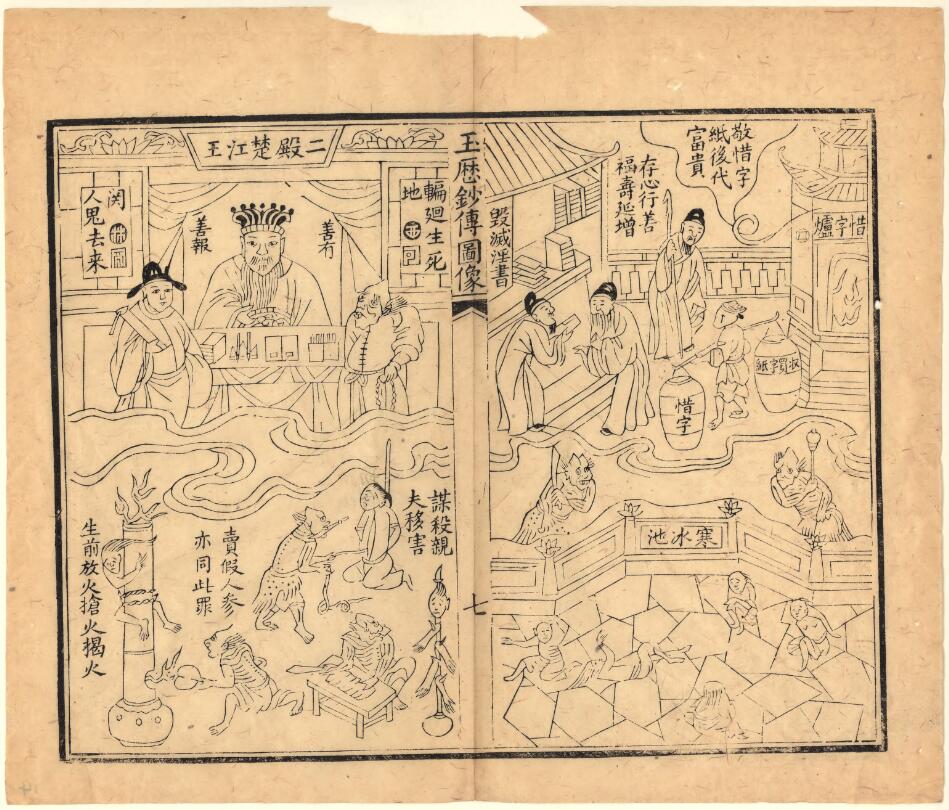 敬惜字
紙後代
富貴
存心行善
福壽延增
惜字爐
毀滅淫書
收買字紙
惜字
寒冰池
玉厯鈔傳圖像
七
二殿楚江王
輪廻生死
地
善有
善報
関
人鬼去来
謀殺親
夫移害
賣假人參
亦同此罪
生前放火搶火